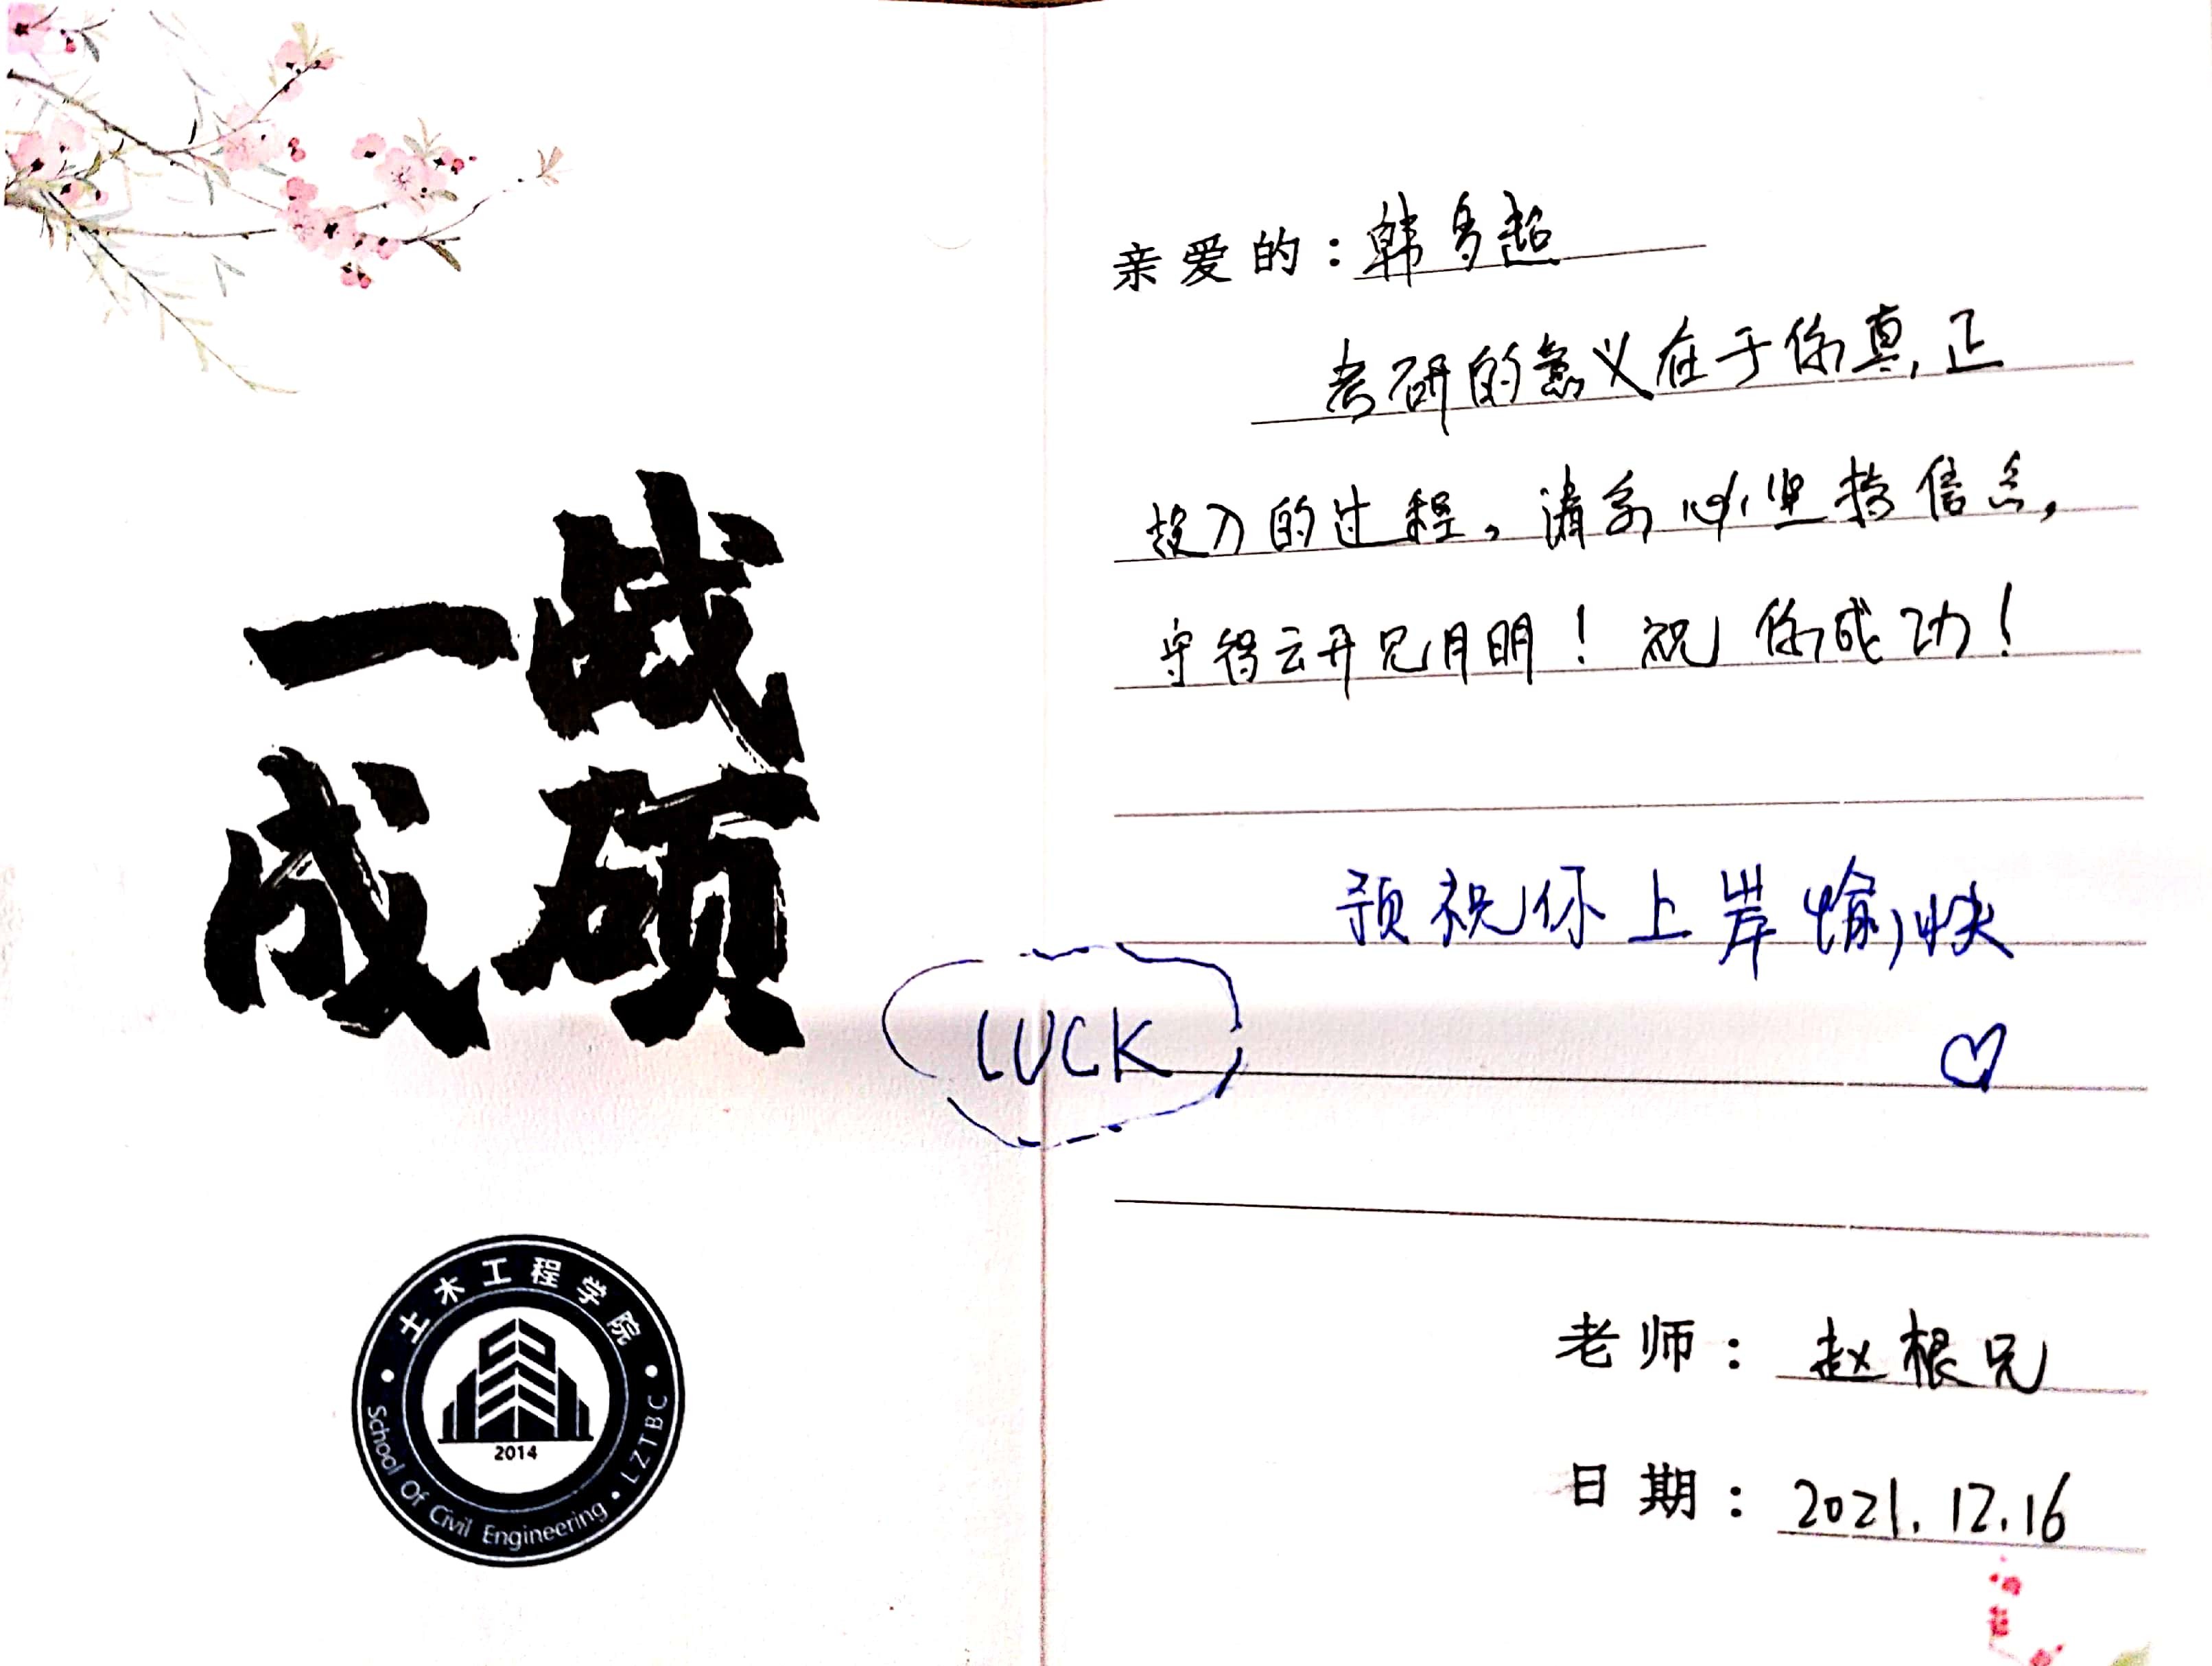 一战
成硕
土木工程学院
2014
School Of Civil Engineering · LZTBC
亲爱的：韩多超
考研的意义在于你真正
投入的过程，请务必坚持信念，
守得云开见月明！祝你成功！
预祝你上岸愉快
LUCK
老师：赵根兄
日期：2021.12.16